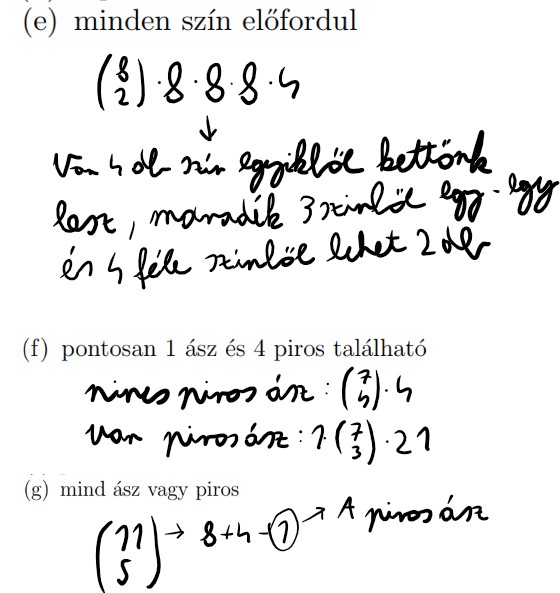 (e) minden szín előfordul
(8 2) · 8 · 8 · 8 · 4
↓
Van 4 db szín egyikből kettőnk
lesz, maradék 3 színből egy-egy
és 4 féle színből lehet 2 db
(f) pontosan 1 ász és 4 piros található
nincs piros ász : (7 4) · 4
van piros ász : 1 · (7 3) · 21
(g) mind ász vagy piros
(11 5) → 8+4-1 → A piros ász